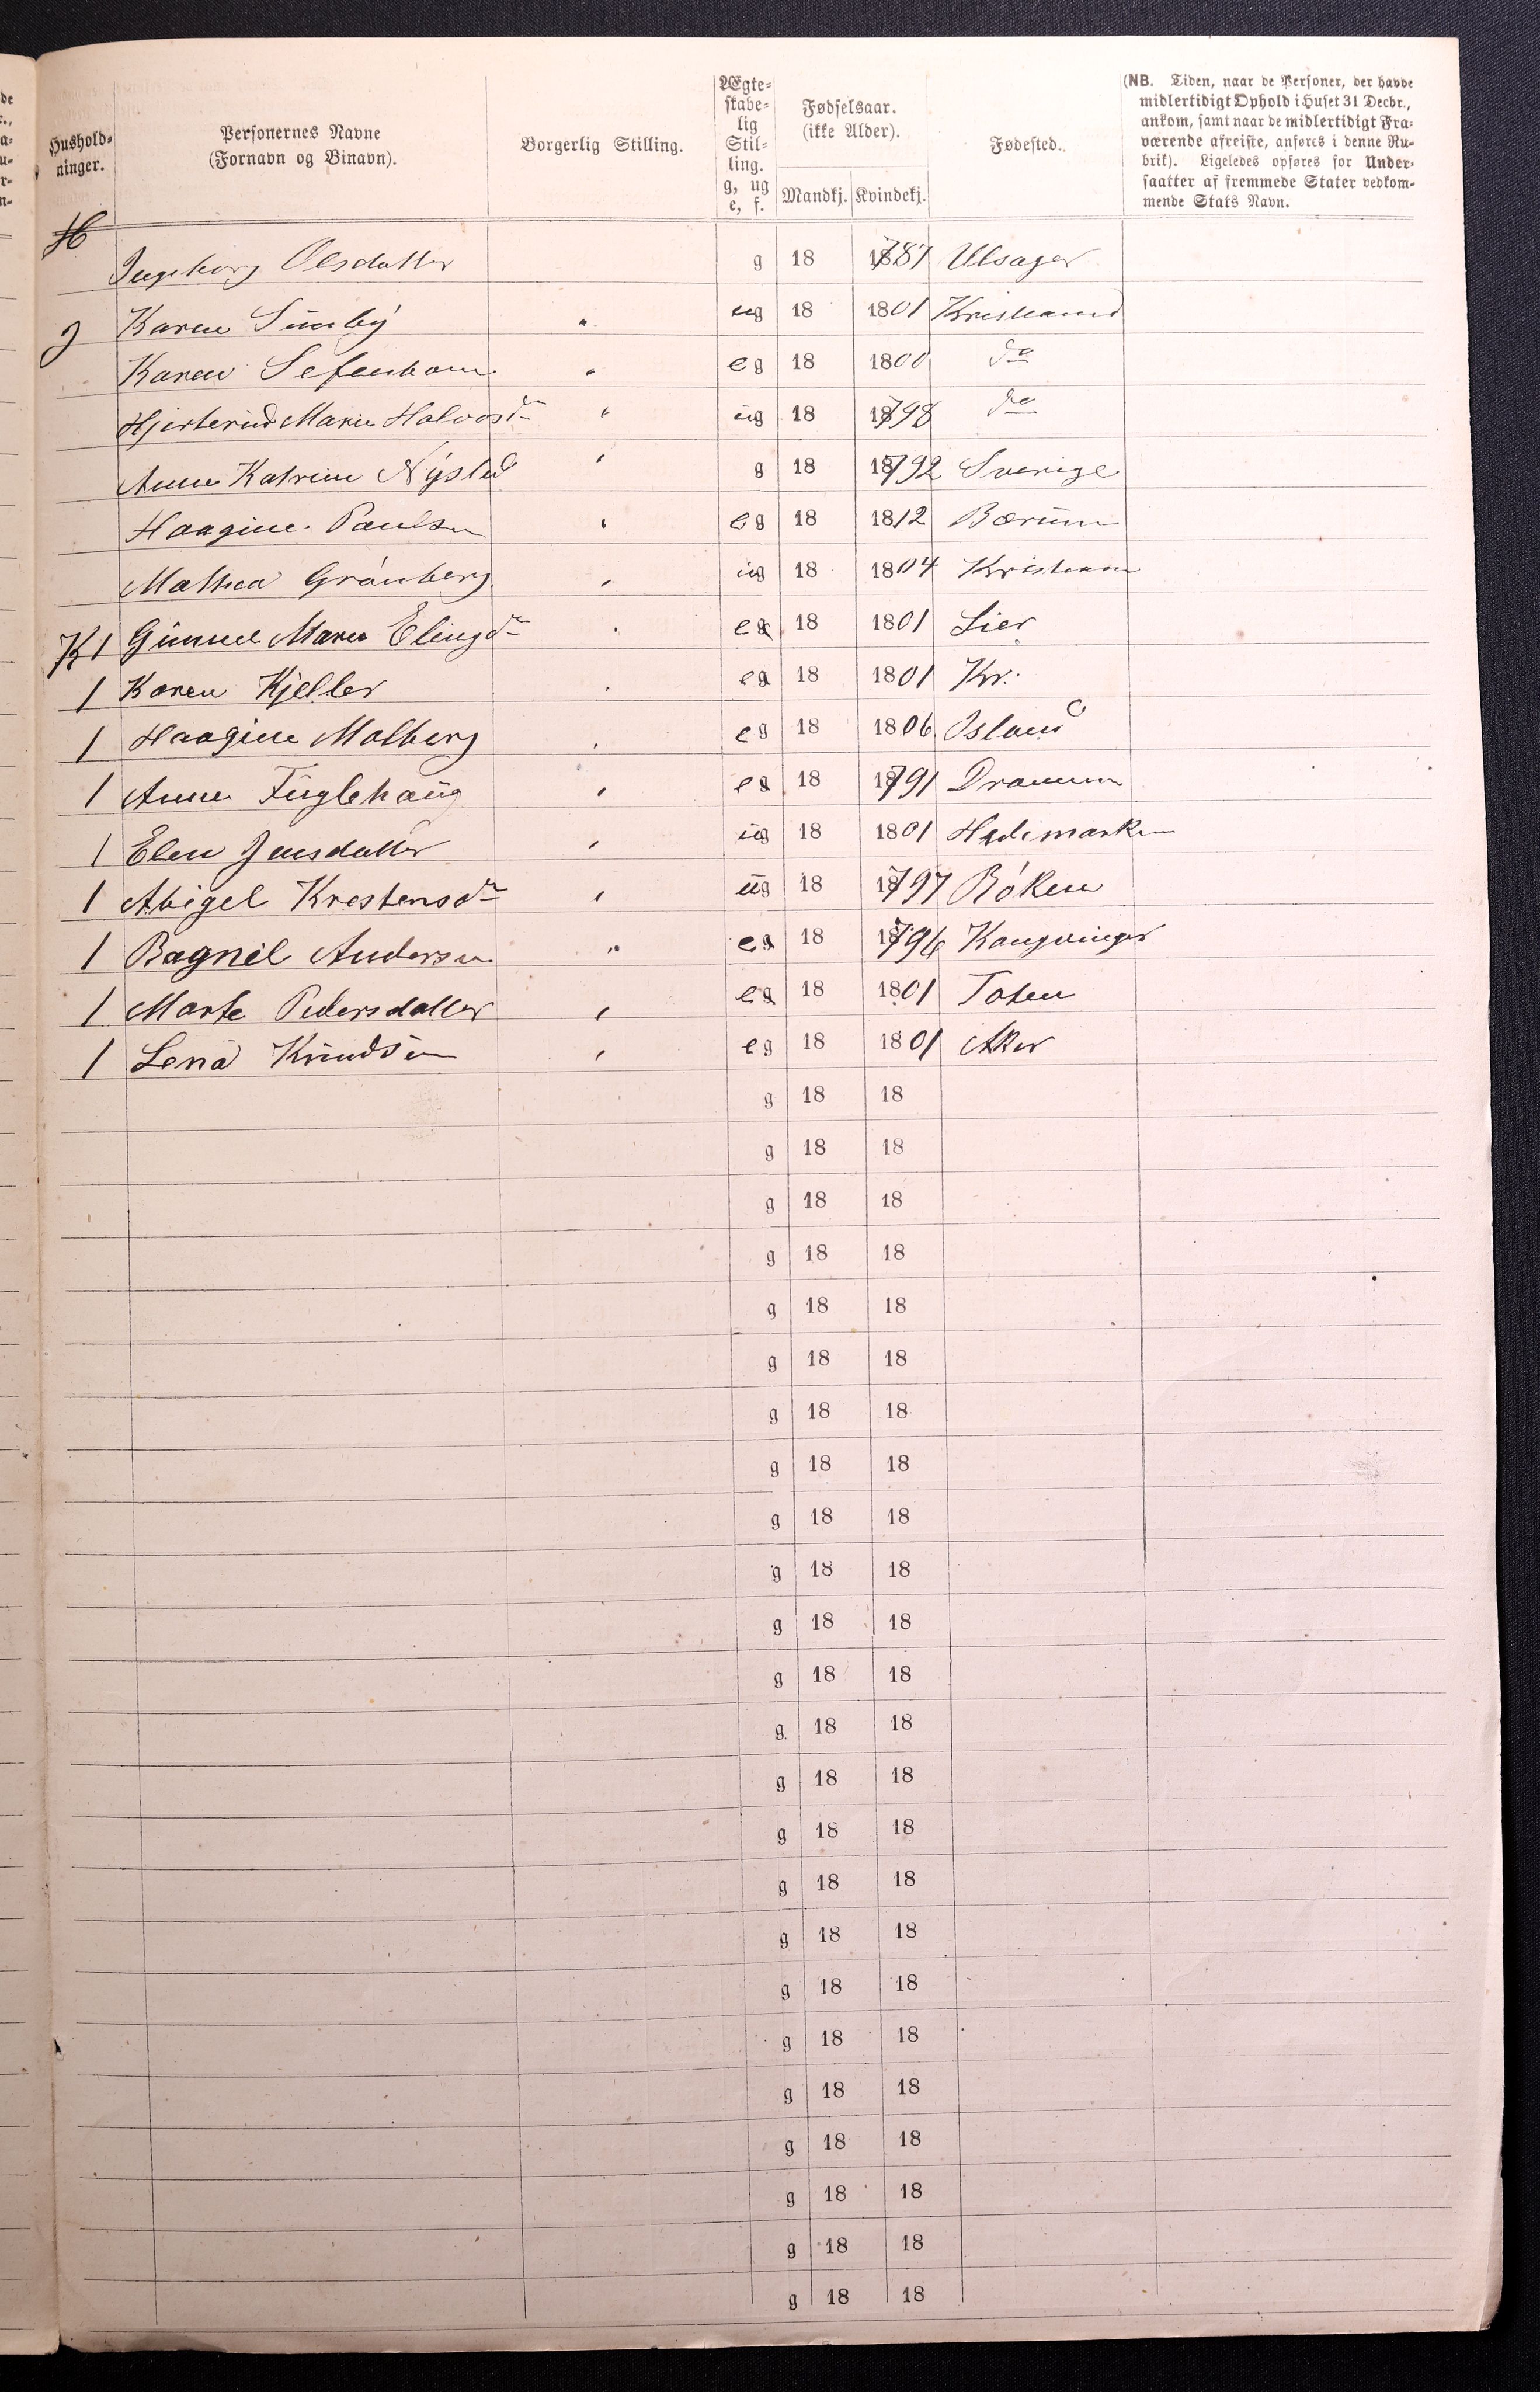 Hushold-
ninger.
Personernes Navne
(Fornavn og Binavn).
Borgerlig Stilling.
Ægte-
skabe-
lig
Stil-
ling.
g, ug
e, f.
Fødselsaar.
(ikke Alder).
Mandkj. Kvindekj.
Fødested.
(NB. Tiden, naar de Personer, der havde
midlertidigt Ophold i Huset 31 Decbr.,
ankom, samt naar de midlertidigt Fra-
værende afreiste, anføres i denne Ru-
brik). Ligeledes opføres for Under-
saatter af fremmede Stater vedkom-
mende Stats Navn.
Ingeborg Olsdatter g 18 1787 Ulsager
J Karen Sünbÿ " ug 18 1801 Kristiania
Karen " eg 18 1800 do
Marie Halvorsdr " ug 18 1798 do
Anne Katrine Nÿsted " g 18 1792 Sverige
Haagine Paulsen " eg 18 1812 Bærüm
Mathea Grönberg " ug 18 1804 Kristiania
K 1 Günnel Marie Elingdr " eg 18 1801 Lier
1 Karen Kjeller " eg 18 1801 Kr.
1 Haagine Molberg " eg 18 1806 Island
1 Anne Füglehaüg " eg 18 1791 Drammen
1 Elen Jensdatter " üg 18 1801 Hedemarken
1 Abigel Krestensdr " üg 18 1797 Röken
1 Ragnil Andersen " eg 18 1796 Kongvinger
1 Marte Pedersdatter " eg 18 1801 Toten
1 Lena Knüdsen " eg 18 1801 Aker
g 18 18
g 18 18
g 18 18
g 18 18
g 18 18
g 18 18
g 18 18
g 18 18
g 18 18
g 18 18
g 18 18
g 18 18
g. 18 18
g 18 18
g 18 18
g 18 18
g 18 18
g 18 18
g 18 18
g 18 18
g 18 18
g 18 18
g 18 18
g 18 18